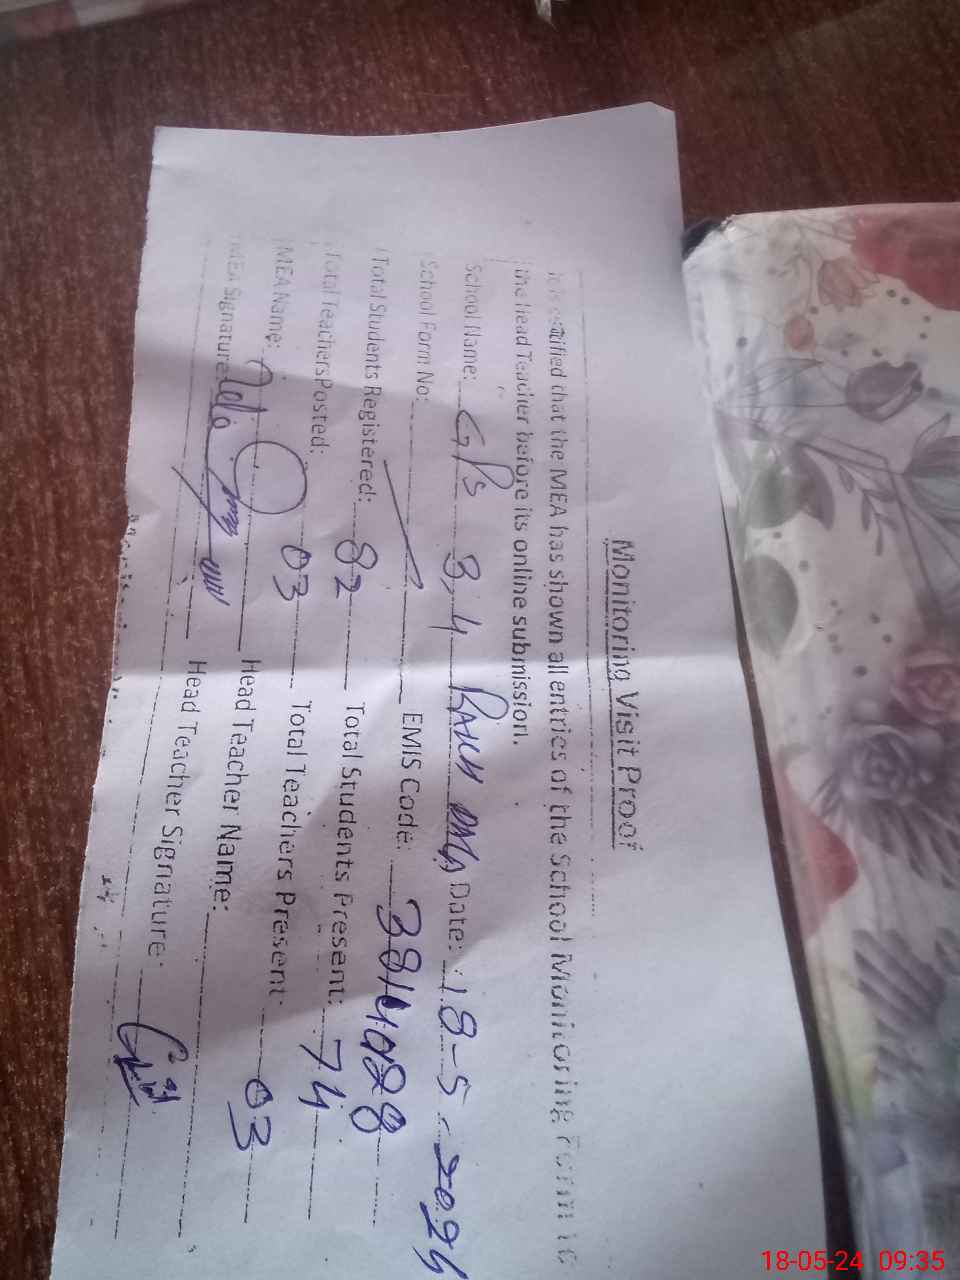 Monitoring Visit Proof
It is certified that the MEA has shown all entries of the School Monitoring Form to
the Head Teacher before its online submission.
School Name: GPS 3,4 Date: 18-5-2024
School Form No: EMIS Code: 38140288
Total Students Registered: 82 Total Students Present: 74
Total Teachers Posted: 03 Total Teachers Present: 03
MEA Name: Head Teacher Name:
MEA Signature: Head Teacher Signature:
18-05-24 09:35